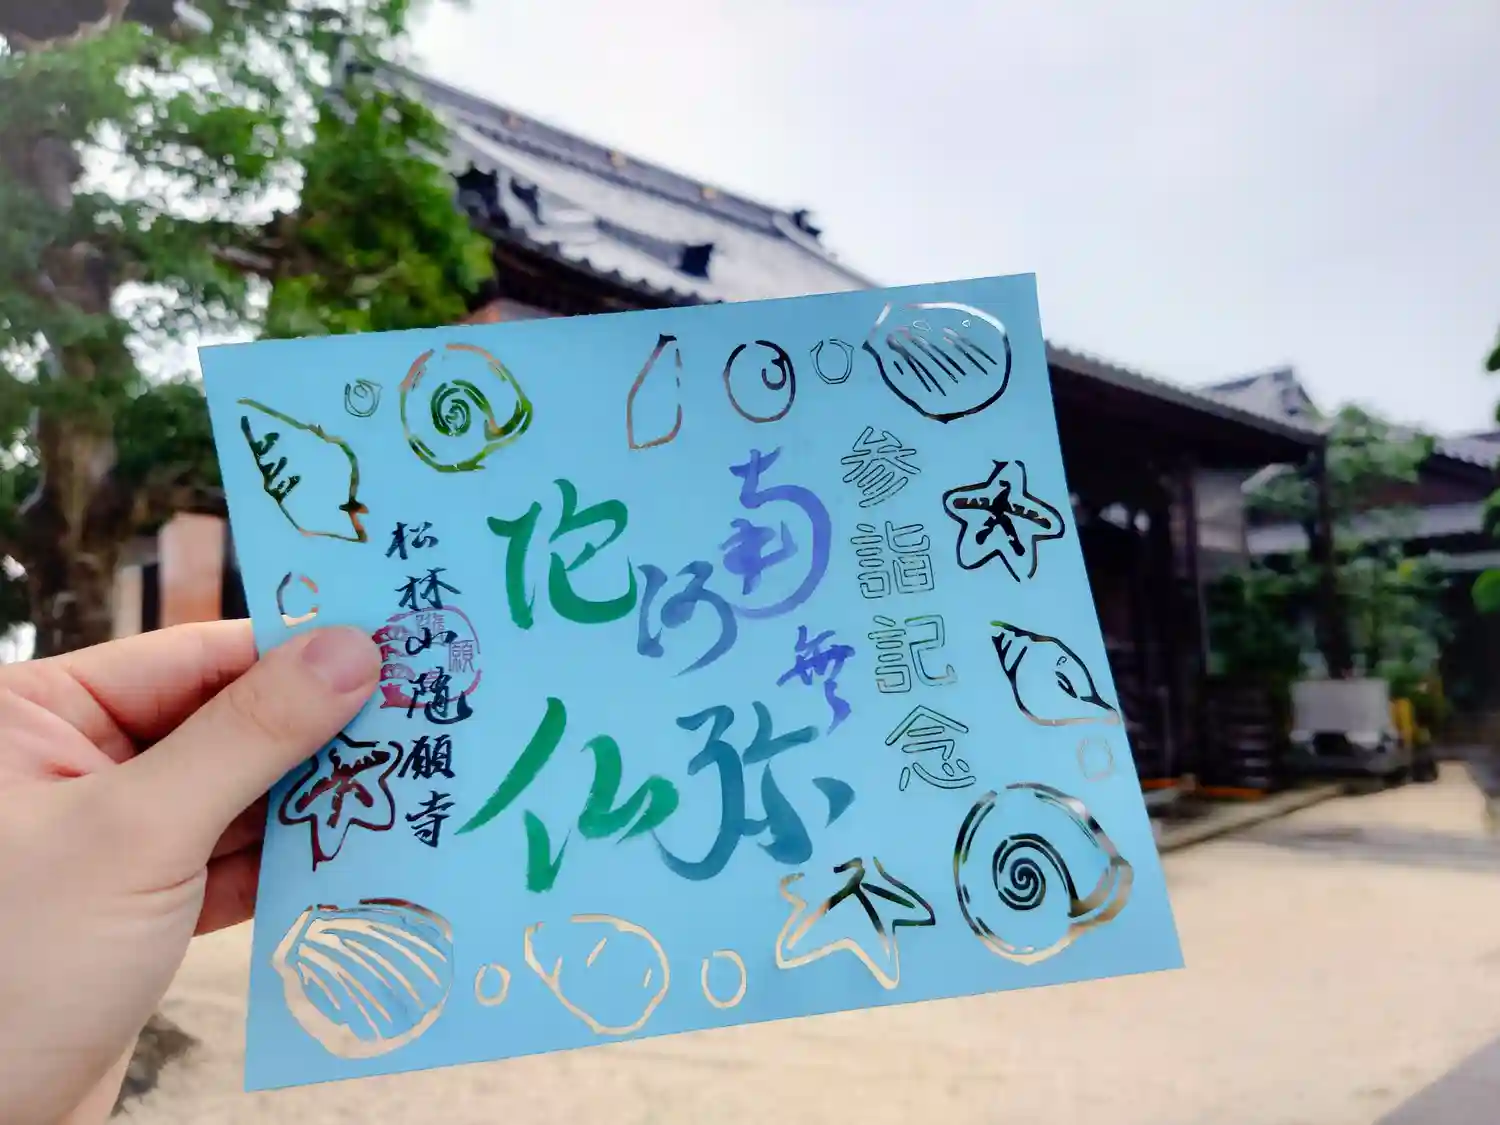 参詣記念
南無
阿弥
陀仏
松林山随願寺
随願